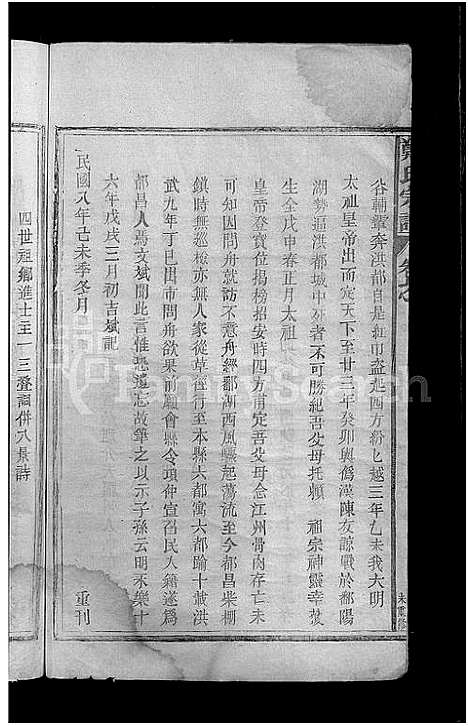 鄭氏宗譜
谷輔輦奔洪都自是紅巾盜起四方紛乜越三年乙未我大明
太祖皇帝出而定天下至廿三年癸卯與僞漢陳友諒戰於鄱陽
湖勢逼洪都城中死者不可勝紀吾父母托賴 祖宗神靈幸獲
生全戊申春正月太祖
皇帝登寶位揭榜招安時四方甫定吾父母念江州骨肉存亡未
可知因問舟就訪不意舟經鄱湖西風驟起蕩流至今都昌柴棚
鎮時無巡檢亦無人家從草徑行至本縣六都寓六都踰十載洪
武九年丁巳因市問舟欲果前願會縣令項仲宣召民入籍遂爲
都昌人馬文斌聞此言惟恐遺忘故筆之以示子孫云明永樂十
六年戊戌三月初吉斌記
民國八年己未季冬月 重刊
四世祖鄉進士至一三登詞併八景詩
未重修
FamilySearch